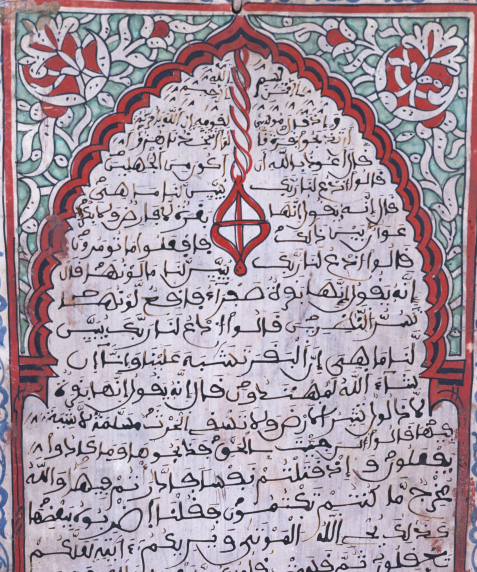 بسم الله
الرحمن الرحيم
وإذ قال موسى لقومه إن الله
أن تذبحوا بقرة قالوا أتتخذنا هزوا
قال أعوذ بالله أن أكون من الجهلين
قالوا ادع لنا ربك يبين لنا ما هي
قال إنه يقول إنها بقرة لا فارض ولا بكر
عوان بين ذلك فافعلوا ما تومرون
قالوا ادع لنا ربك يبين لنا ما لونها قال
إنه يقول إنها بقرة صفراء فاقع لونها
تسر النظرين قالوا ادع لنا ربك يبين
لنا ما هي إن البقر تشبه علينا وإنا إن
شاء الله لمهتدون قال إنه يقول إنها بقرة
لا ذلول تثير الارض ولا تسقي الحرث مسلمة لا شية
فيها قالوا الن جئت بالحق فذبحوها وما كادوا
يفعلون وإذ قتلتم نفسا فادارأتم فيها والله
مخرج ما كنتم تكتمون فقلنا اضربوه ببعضها
كذلك يحي الله الموتى ويريكم ءايته لعلكم
تعقلون ثم قست